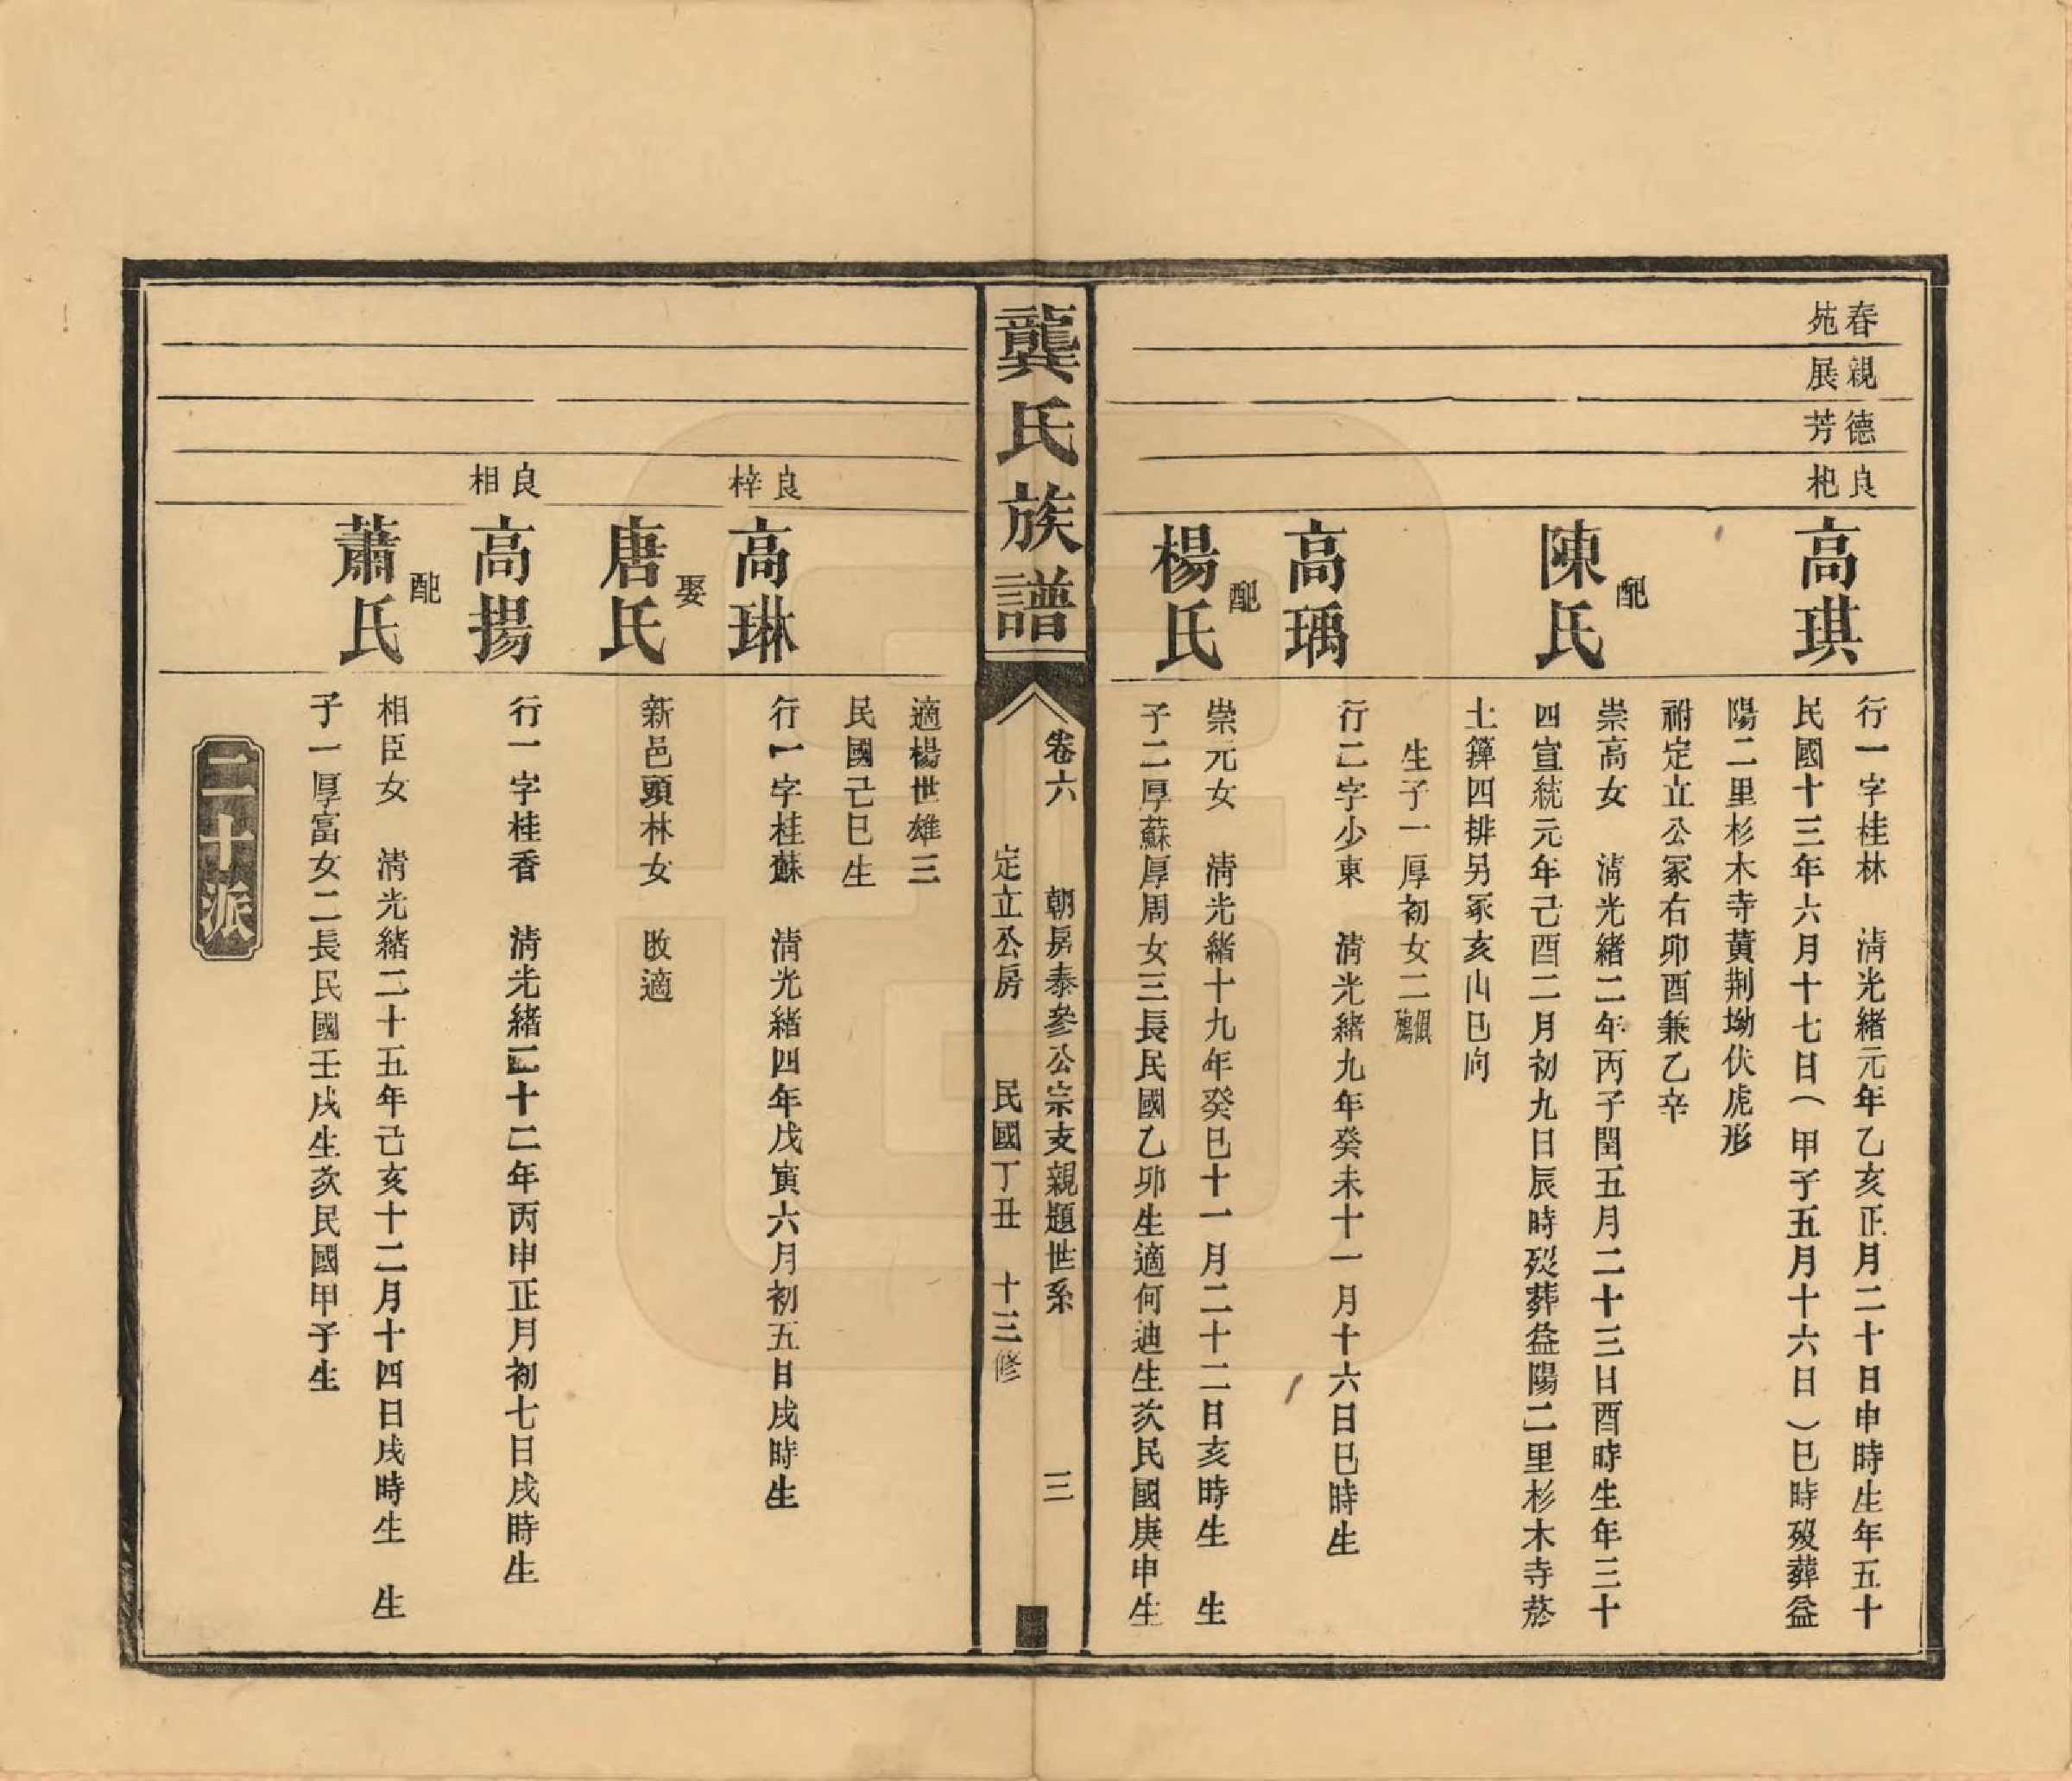 春苑
親展
德芳
良𣏌
高琪
行一字桂林　淸光緒元年乙亥正月二十日申時生年五十
民國十三年六月十七日（甲子五月十六日）巳時歿葬益
陽二里杉木寺黃荆坳伏虎形
祔定立公冢右卯酉兼乙辛
配
陳氏
崇高女　淸光緒二年丙子閏五月二十三日酉時生年三十
四宣統元年己酉二月初九日辰時歿葬益陽二里杉木寺菸
土籜四排另冢亥山巳向
生子一厚初女二俱殤
高瑀
行二字少東　淸光緒九年癸未十一月十六日巳時生
配
楊氏
崇元女　淸光緒十九年癸巳十一月二十二日亥時生　生
子二厚蘇厚周女三長民國乙卯生適何迪生次民國庚申生
龔氏族譜
卷六　朝房泰參公宗支親題世系　三
定立公房　民國丁丑　十三修
適楊世雄三
民國己巳生
良梓
高琳
行一字桂蘇　淸光緒四年戊寅六月初五日戌時生
娶
唐氏
新邑頭林女　改適
良相
高揚
行一字桂香　淸光緒二十二年丙申正月初七日戌時生
配
蕭氏
相臣女　淸光緒二十五年己亥十二月十四日戌時生　生
子一厚富女二長民國壬戌生次民國甲子生
二十派